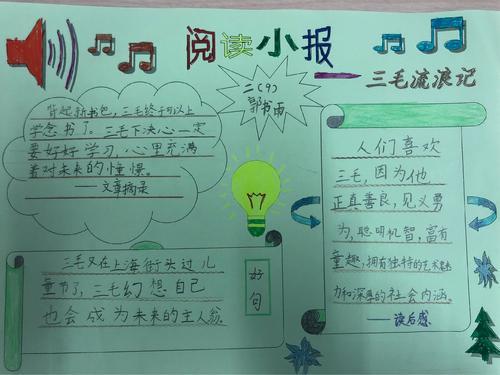 阅读小报
——三毛流浪记
二(9)
郭书雨
背起新书包，三毛终于可以上
学念书了。三毛下决心一定
要好好学习，心里充满
着对未来的憧憬。
——文章摘录
人们喜欢
三毛，因为他
正真善良，见义勇
为，聪明机智，富有
童趣，拥有独特的艺术魅
力和深厚的社会内涵。
——读后感
三毛又在上海街头过儿
童节了，三毛幻想自己
也会成为未来的主人翁。
好句